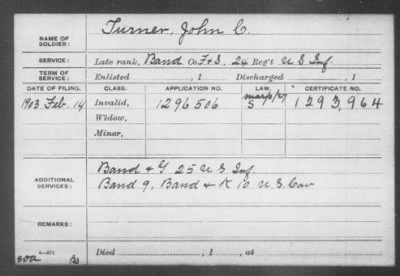 NAME OF SOLDIER: Turner, John C.
SERVICE: Late rank, Band Co. F+S, 24 Reg't U S Inf.
TERM OF SERVICE: Enlisted , 1 Discharged , 1
DATE OF FILING. CLASS. APPLICATION NO. LAW. CERTIFICATE NO.
1903. Feb. 14 Invalid, 1296506 S 1293,964
Widow,
Minor,
ADDITIONAL SERVICES: Band + G 25 U S Inf.
Band 9. Band + K 10 U.S. Cav
REMARKS:
Died , 1 , at